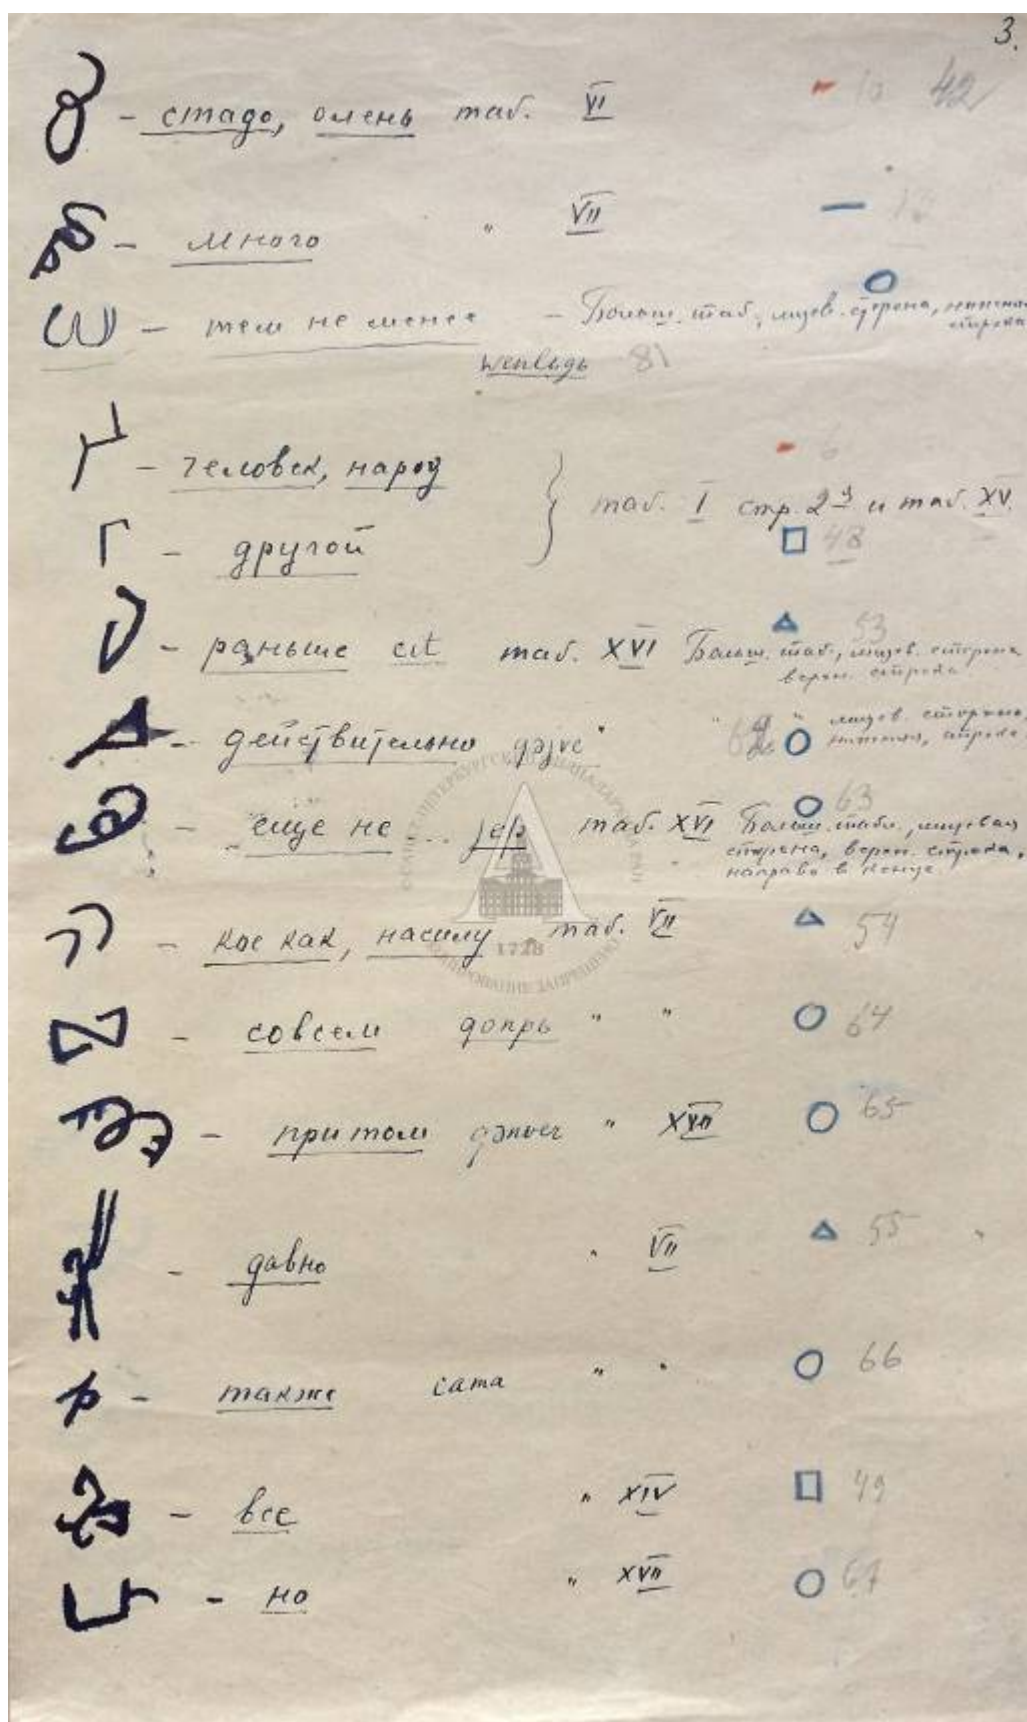 3.
– стадо, олень таб. VI 10 42
– много " VII 12
– тем не менее – Больш. таб., лицев. сторона, нижняя
строка
81
– человек, народ 6
таб. I стр. 2 и таб. XV.
– другой 48
– раньше cit таб. XVI 53 Больш. таб., лицев. сторона
верхн. строка
– действительно " " " лицев. сторона,
нижняя, строка
– еще не ... таб. XVI 63 Больш. табл., лицевая
сторона, верхн. строка,
направо в конце.
– кое как, насилу таб. VII 54
1728
– совсем допрь " " 64
– притом " XVII 65
– давно " VII 55
– также сата " " 66
– все " XIV 49
– но " XVII 67